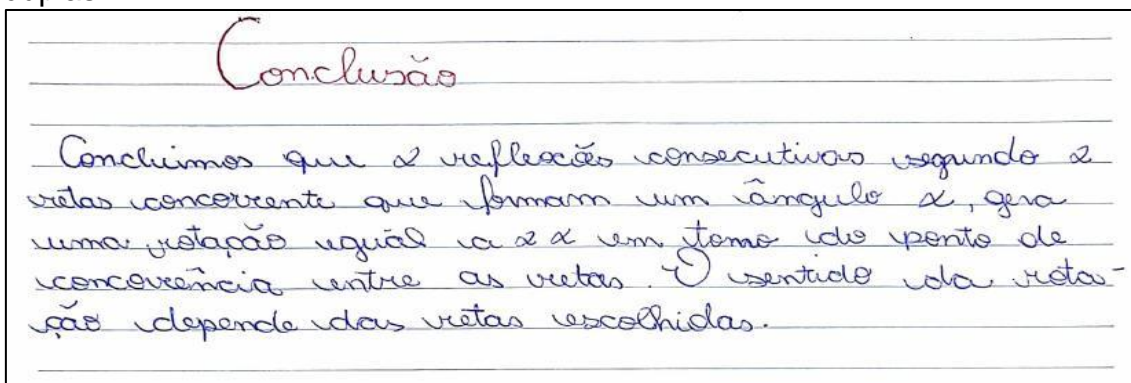 Conclusão
Concluimos que 2 reflexões consecutivas segundo 2
retas concorrente que formam um ângulo α, gera
uma rotação igual a 2α em torno do ponto de
concorrência entre as retas. O sentido da rota-
ção depende das retas escolhidas.